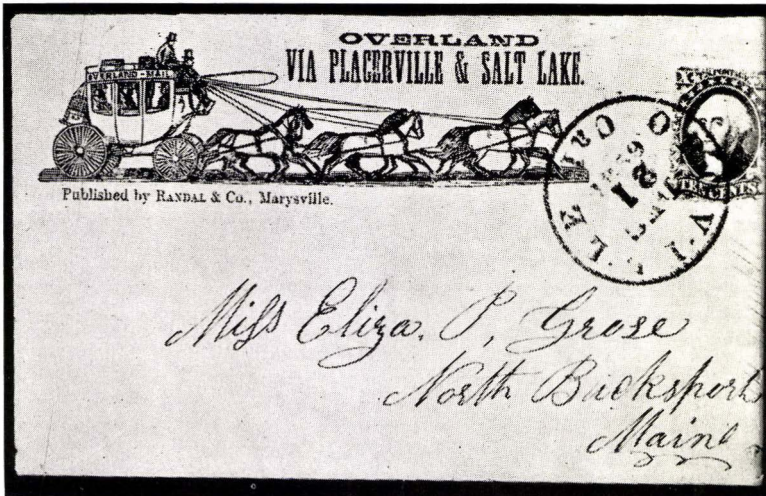 OVERLAND
VIA PLACERVILLE & SALT LAKE.
OVERLAND-MAIL
Published by RANDAL & Co., Marysville.
21
Miss Eliza. P. Grose
North Bucksport
Maine